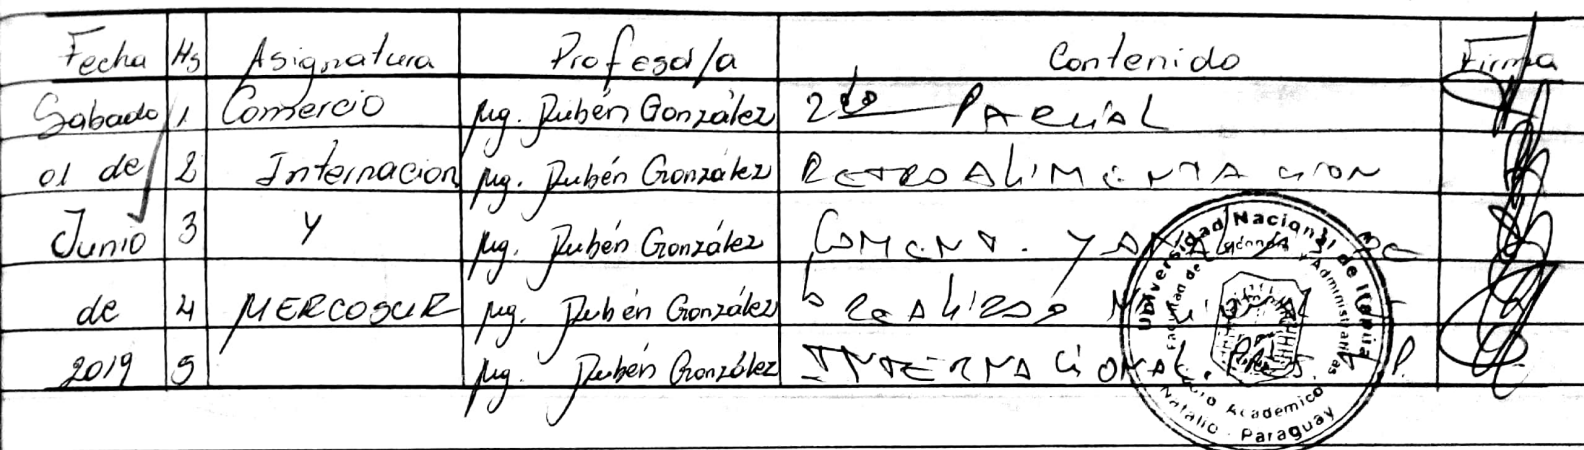 Fecha Hs Asignatura Profesor/a Contenido Firma
Sabado 1 Comercio Mg. Rubén González 2do PARCIAL
01 de 2 Internacion Mg. Rubén González RETROALIMENTACION
Junio 3 Y Mg. Rubén González COMENT. Y
de 4 MERCOSUR Mg. Rubén González
2019 5 Mg. Rubén González INTERNACIONAL
Universidad Nacional de Itapúa
Facultad de Ciencias y Administrativas
Académico
Natalio - Paraguay